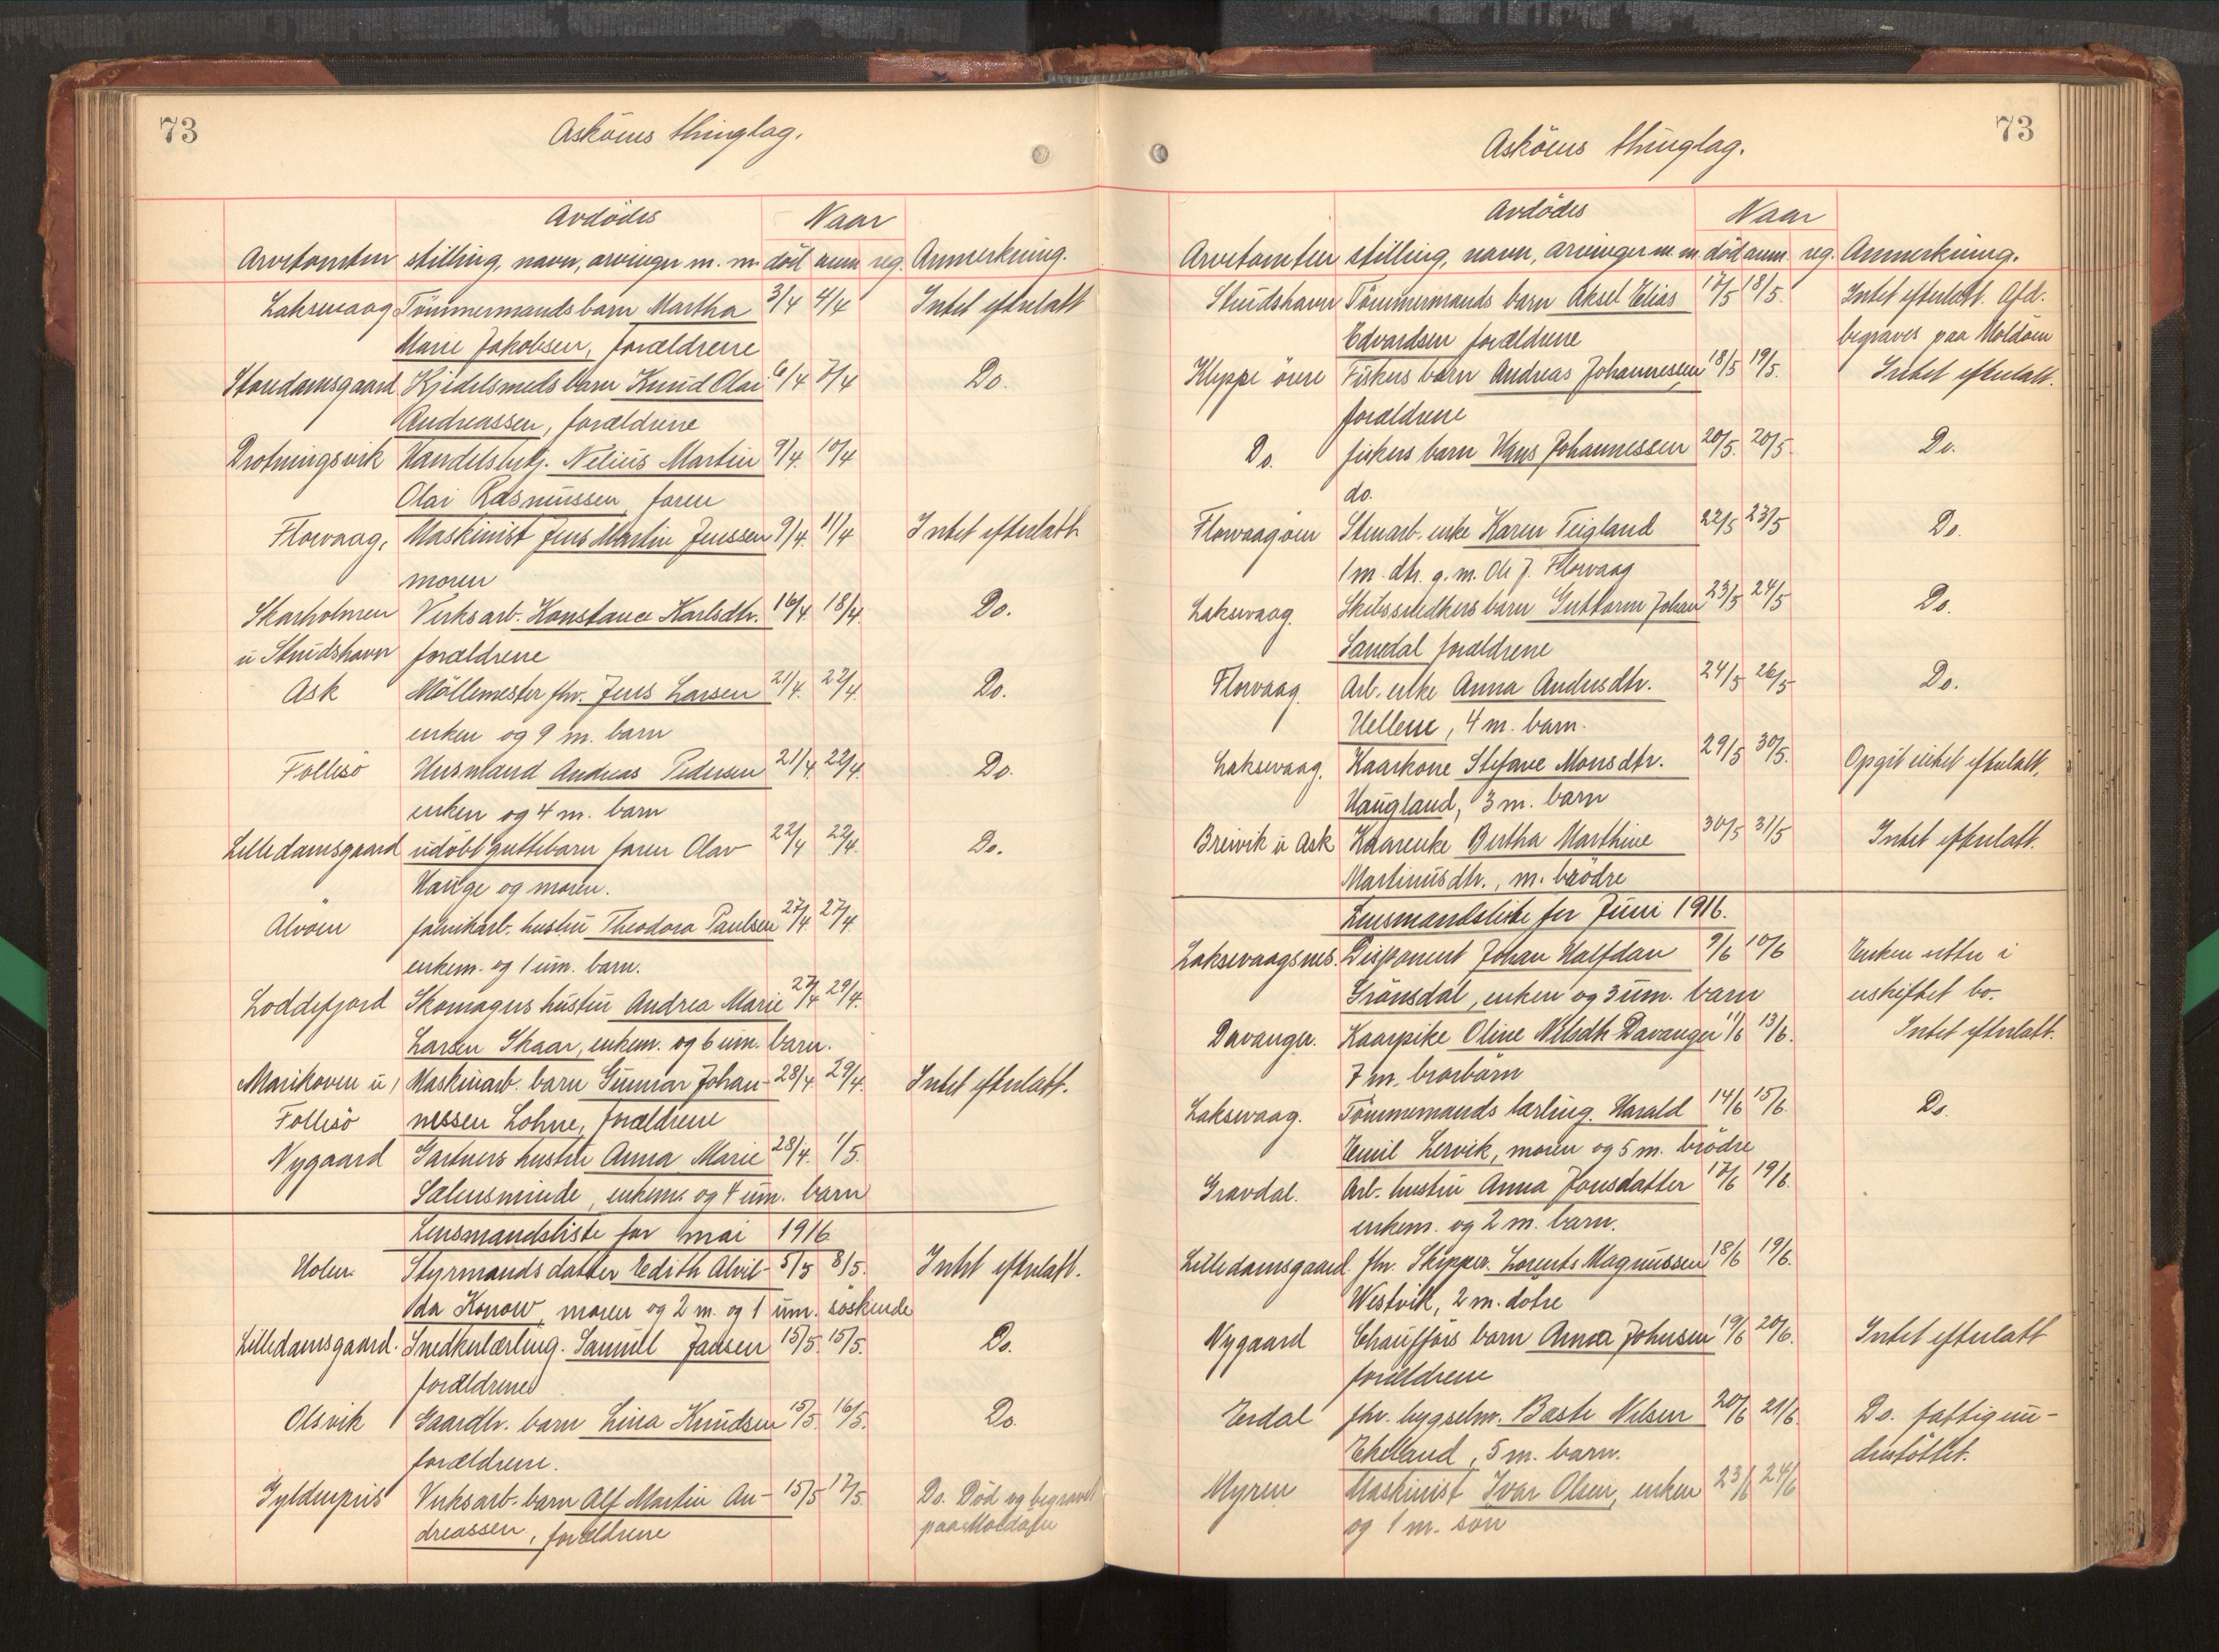 73
Askøens thinglag.
Avdødes Naar
Arvetomten stilling, navn, arvinger m. m. død anm reg. Anmerkning.
Laksevaag Tømmermands barn Martha 3/4 4/4 Intet efterlatt
Marie Jakobsen, forældrene
Storedamsgaard Kjedelsmeds barn Knud Olai 6/4 7/4 Do.
Andreassen, forældrene
Drotningsvik Handelsbetj. Nelius Martin 9/4 10/4
Olai Rasmussen, faren
Florvaag, Maskinist Jens Martin Jenssen 9/4 11/4 Intet efterlatt
moren
Skarholmen Verksarb. Konstance Karlsdtr. 16/4 18/4 Do.
u Strudshavn forældrene
Ask Møllemester fhv. Jens Larsen 21/4 22/4 Do.
enken og 9 m. barn
Follesø Husmand Andreas Pedersen 21/4 22/4 Do.
enken og 4 m. barn
Lilledamsgaard udøbt guttebarn faren Olav 22/4 22/4 Do.
Hauge og moren.
Alvøen fabrikarb. hustru Theodora Paulsen 27/4 27/4
enkem. og 1 um. barn.
Loddefjord Skomagers hustru Andrea Marie 27/4 29/4
Larsen Skaar, enkem. og 6 um. barn.
Marikoven u/ Maskinarb. barn Gunnar Johan- 28/4 29/4 Intet efterlatt.
Follesø nessen Lohne, forældrene
Nygaard Gartners hustru Anna Marie 28/4 1/5.
Sælensminde, enkem. og 4 um. barn
Lensmandsliste for mai 1916
Holen Styrmands datter Edith Alvil- 5/5 8/5. Intet efterlatt.
da Konow, moren og 2 m. og 1 um. søskende
Lilledamsgaard. Snedkerlærling. Samuel Jansen 15/5. 15/5. Do.
forældrene
Olsvik Gaardbr. barn Lina Knudsen 15/5. 16/5. Do.
forældrene.
Gyldenpris Verksarb. barn Alf Martin An- 15/5 17/5. Do. Død og begravet
dreassen, forældrene paa Moldøen
73
Askøens thinglag.
Avdødes Naar
Arvetomten stilling, navn, arvinger m. m. død anm. reg. Anmerkning.
Strudshavn Tømmermands barn Aksel Elias 17/5 18/5. Intet efterlatt. Afd.
Edvardsen forældrene begraves paa Moldøen
Kleppe øvre Fiskers barn Andreas Johannessen 18/5 19/5. Intet efterlatt.
forældrene
Do. fiskers barn Hans Johannessen 20/5. 20/5. Do.
do.
Florvaagøen Stenarb. enke Karen Teigland 22/5 23/5 Do.
1 m. dtr. g. m. Ole J. Florvaag
Laksevaag. Skibssnedkers barn Guttorm Johan 23/5 24/5 Do.
Sanedal forældrene
Florvaag Arb. enke Anna Andersdtr. 24/5 26/5 Do.
Hellene, 4 m. barn.
Laksevaag. Kaarkone Stefane Monsdtr. 29/5 30/5. Opgit intet efterlatt.
Haugland, 3 m. barn
Breivik u Ask Kaarenke Bertha Marthine 30/5 31/5 Intet efterlatt.
Martinusdtr., m. brødre
Lensmandsliste for Juni 1916.
Laksevaagsnes. Disponent Johan Halfdan 9/6 10/6 Enken sitter i
Grønsdal, enken og 3 um. barn uskiftet bo.
Davanger. Kaarpike Oline Nilsdtr Davanger 11/6 13/6. Intet efterlatt.
7 m. brorbarn
Laksevaag. Tømmermands lærling. Harald 14/6 15/6. Do.
Emil Lervik, moren og 5 m. brødre
Gravdal. Arb. hustru Anna Jonsdatter 17/6 19/6.
enkem. og 2 m. barn.
Lilledamsgaard fhv. Skipper. Lorents Magnussen 18/6 19/6.
Westvik, 2 m. døtre
Nygaard Chaufførs barn Anna Johnsen 19/6 20/6. Intet efterlatt
forældrene
Erdal fhv. bygselm. Baste Nilsen 20/6 21/6. Do. fattigun-
Ekeland, 5 m. barn. derstøttet.
Myren Maskinist Ivar Olsen, enken 23/6 24/6
og 1 m. søn